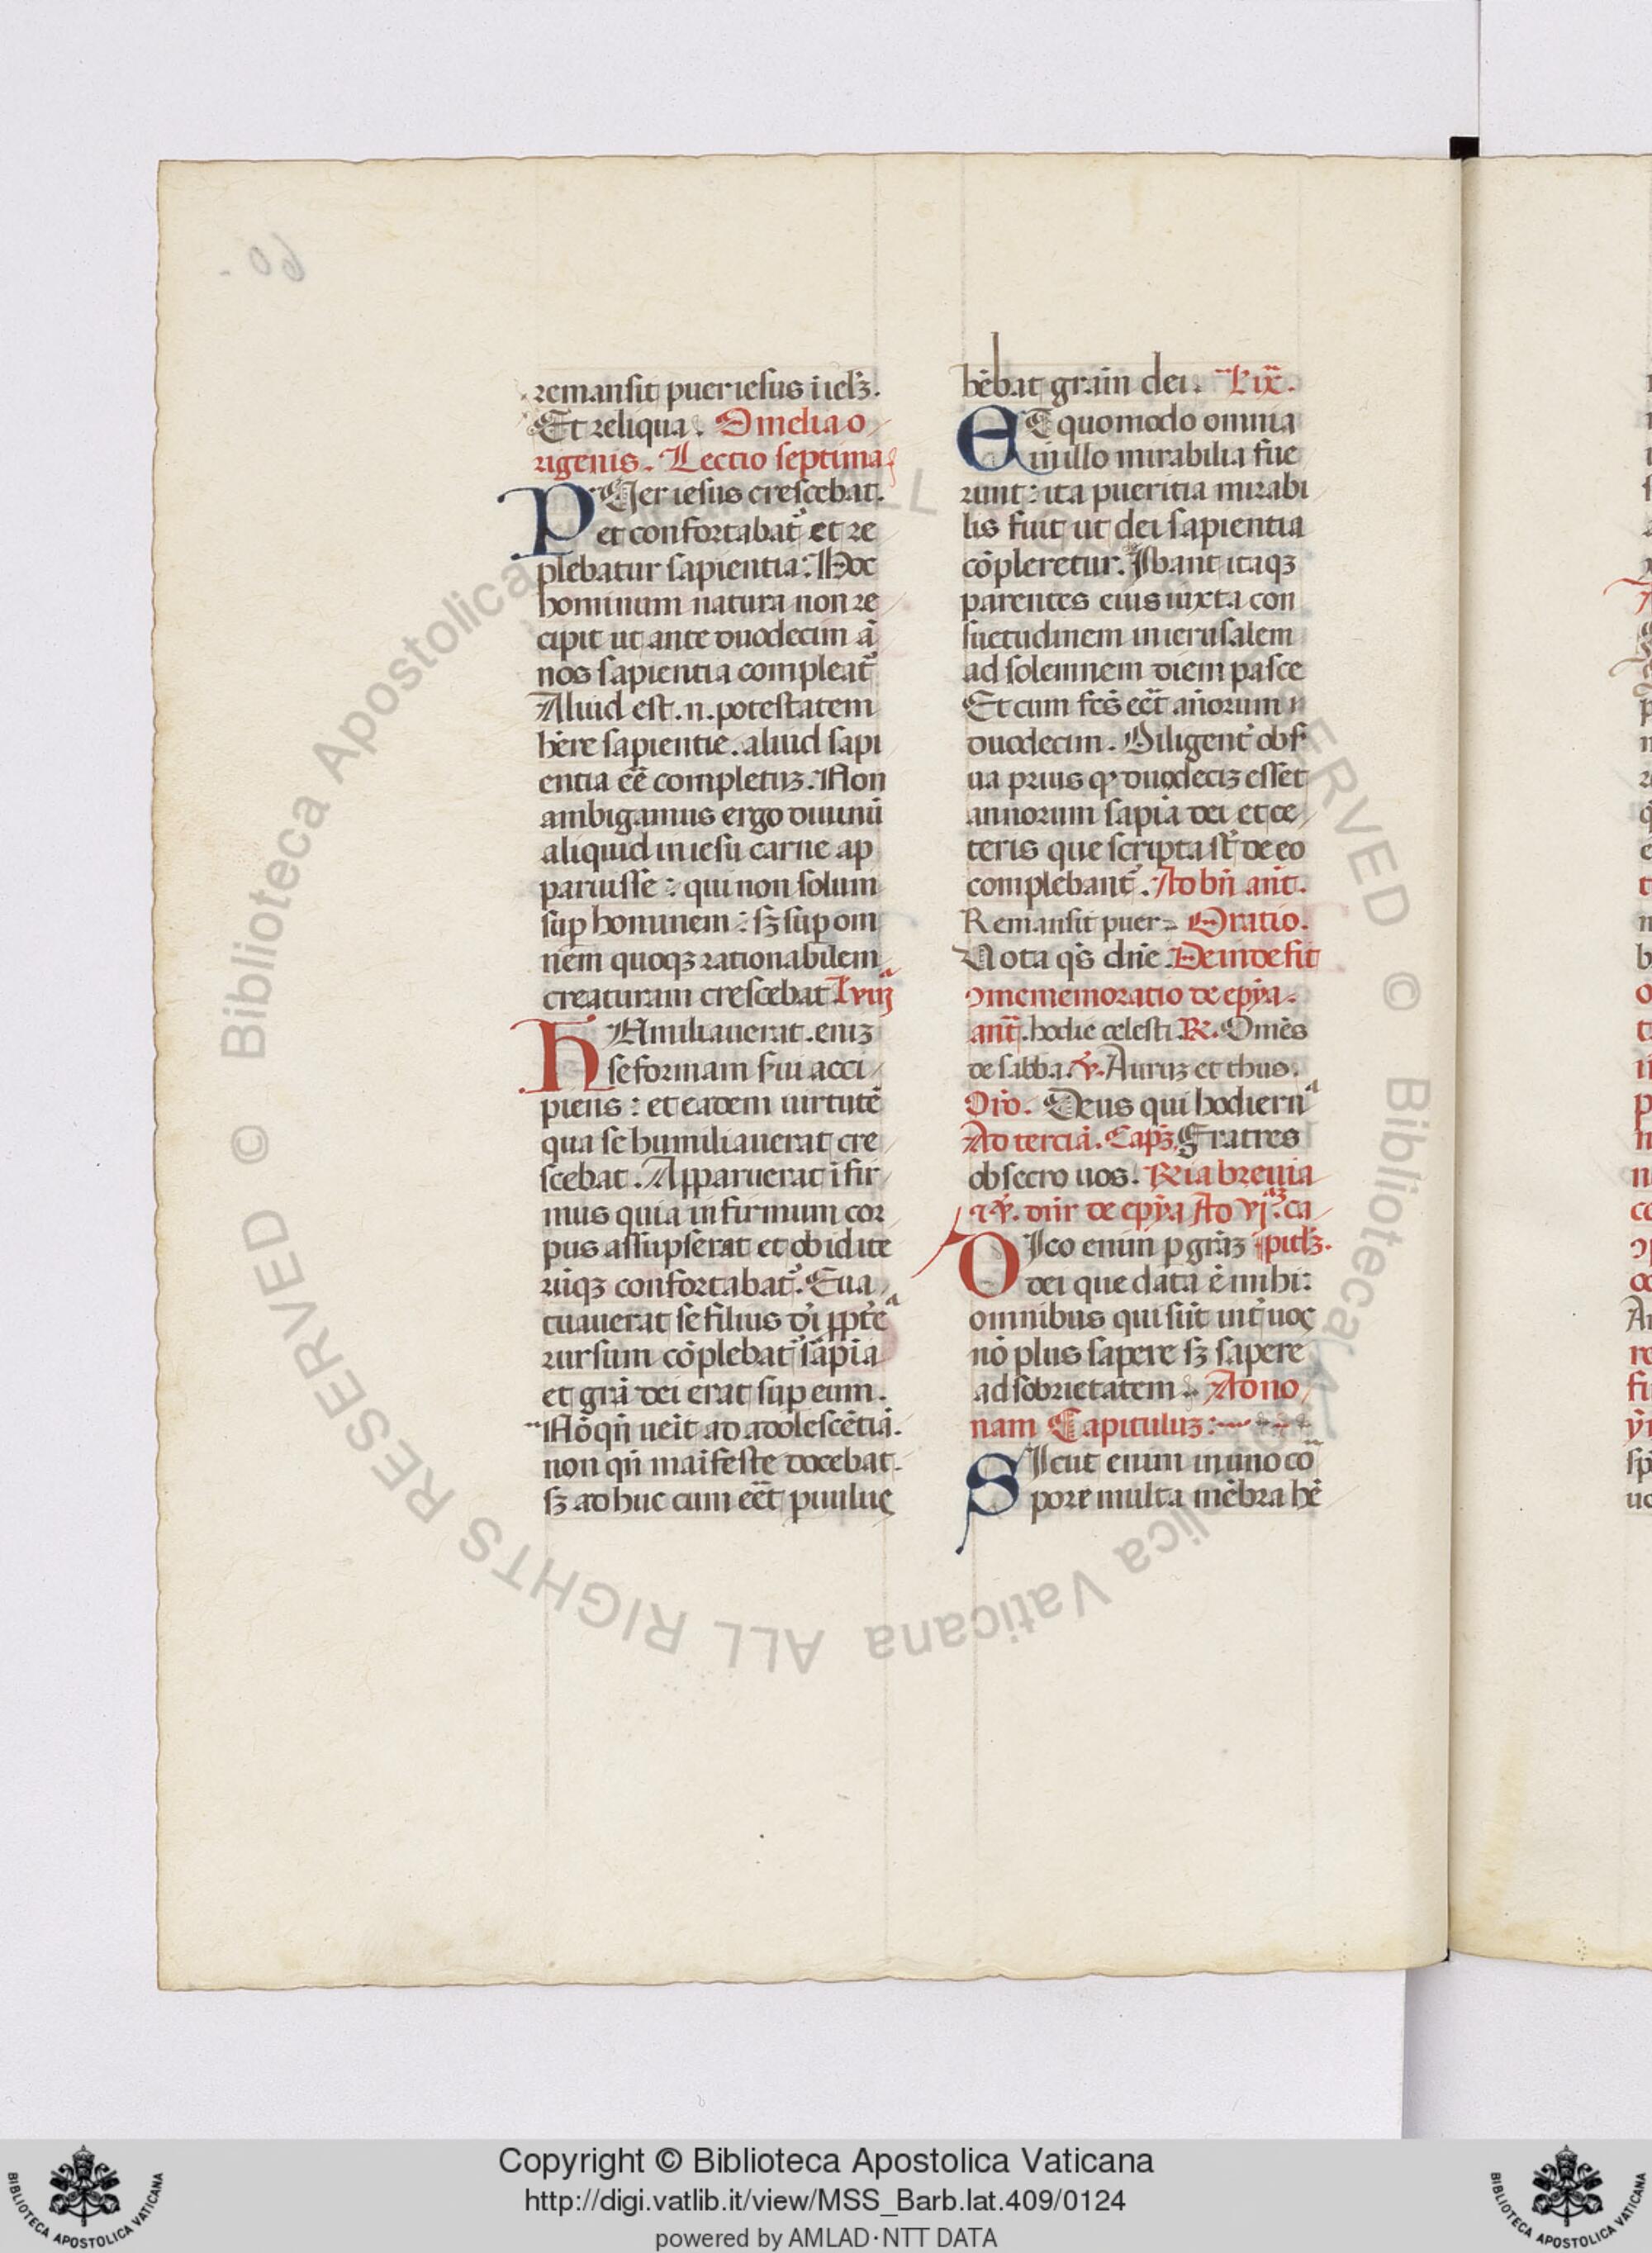 remansit puer iesus i ielꝫ.
Et reliqua. Omelia o
rigenis. Lectio septima
PUer iesus crescebat.
et confortabat᷑ et re
plebatur sapientia: Hoc
hominum natura non re
cipit ut ante duodecim ā
nos sapientia compleat᷑
Aliud est .n. potestatem
hēre sapientie. aliud sapi
entia eē̄ completuꝫ. Non
ambigamus ergo diuinū
aliquid in iesu carne ap
paruisse: qui non solum
suꝑ hominem: sꝫ suꝑ om
nem quoqꝫ rationabilem
creaturam crescebat Lviijᵃ
HUmiliauerat. eniꝫ
se formam s̄ui acci
piens: et eadem uirtute
qua se humiliauerat cre
scebat. Apparuerat ifir
mus quia infirmum cor
pus assupserat et ob id ite
rūqꝫ confortabat᷑. Eua
cuauerat se filius dī ꝓpt̄eᵃ
rursum cōplebat᷑ sapīa
et grā dei erat suꝑ eum.
Nō qn̄ ueīt ad adolescētiā.
non qn̄ maīfeste docebat.
sꝫ adhuc cum eēt puuluꝰ
hēbat gr̄am dei. Lix.
ET quomodo omnia
in illo mirabilia fue
runt: ita pueritia mirabi
lis fuit ut dei sapientia
cōpleretur. Ibant itaqꝫ
parentes eius iuxta con
suetudinem in ierusalem
ad solemnem diem pasce
Et cum fc̄s eēt an̄orum
duodecim. Diligent᷑ obs̄
ua prius qͣ duodeciꝫ esset
annorum sapīa dei et ce
teris que scripta sūt de eo
complebant᷑. Ad bn̄ ant̄.
Remansit puer Oratio.
Uota qs̄ dn̄e Deinde fit
ꝯmememoratio de epyā.
ant̄. hodie celesti. R. Omēs
de sabba. v̄. Auruꝫ et thus.
Orō. Deus qui hodiernᵃ
Ad terciā. Capꝫ. Fratres
obsecro uos. Ria breuia
⁊ v̄. dn̄r de epyā Ad vjᵃꝫ. ca
DIco enim ꝑ gr̄aꝫ pitlꝫ.
dei que data ē mihi:
omnibus qui sūt int᷑ uoꝰ
nō plus sapere sꝫ sapere
ad sobrietatem. Ad no
nam Capituluꝫ:
SIcut enim in uno co᷑
pore multa mēbra hē
Copyright © Biblioteca Apostolica Vaticana
http://digi.vatlib.it/view/MSS_Barb.lat.409/0124
powered by AMLAD·NTT DATA